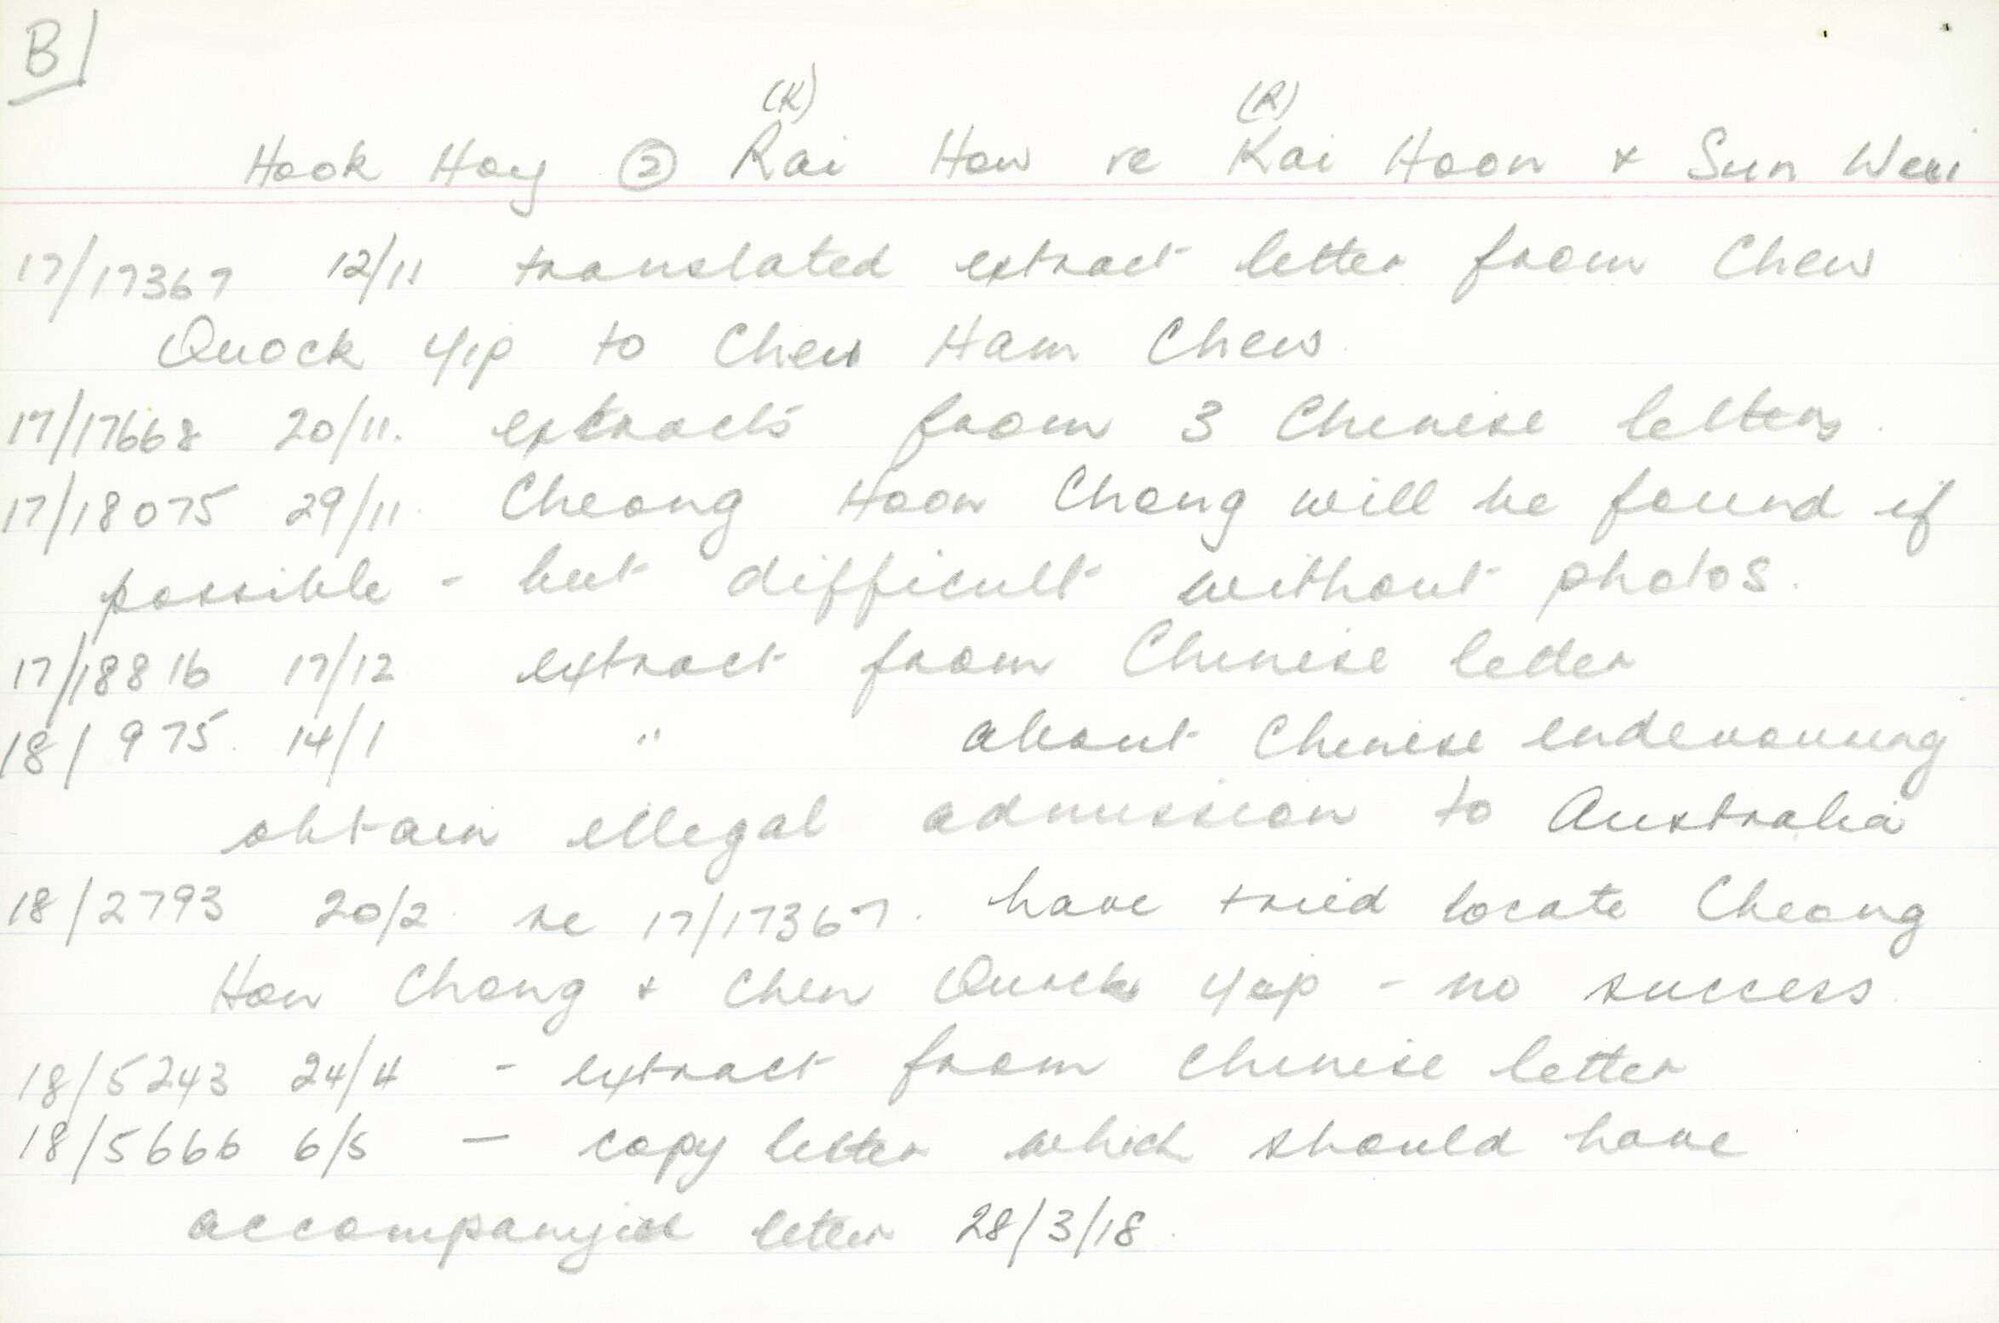 B/
(K) (R)
Hook Hoy ② Rai How re Kai Hoon + Sun
17/17367 12/11 translated extract letter from Chew
Quock Yip to Chew Ham Chew
17/17668 20/11. extracts from 3 Chinese letters.
17/18075 29/11. Cheong Hoon Chong will be found if
possible - but difficult without photos.
17/18816 17/12 extract from Chinese letter
18/975. 14/1 " about Chinese endevouring
obtain illegal admission to Australia
18/2793 20/2. re 17/17367. have tried locate Cheong
Hon Chong + Chew Quock Yip - no success.
18/5243 24/4 - extract from Chinese letter
18/5666 6/5 - copy letter which should have
accompanyied letter 28/3/18.